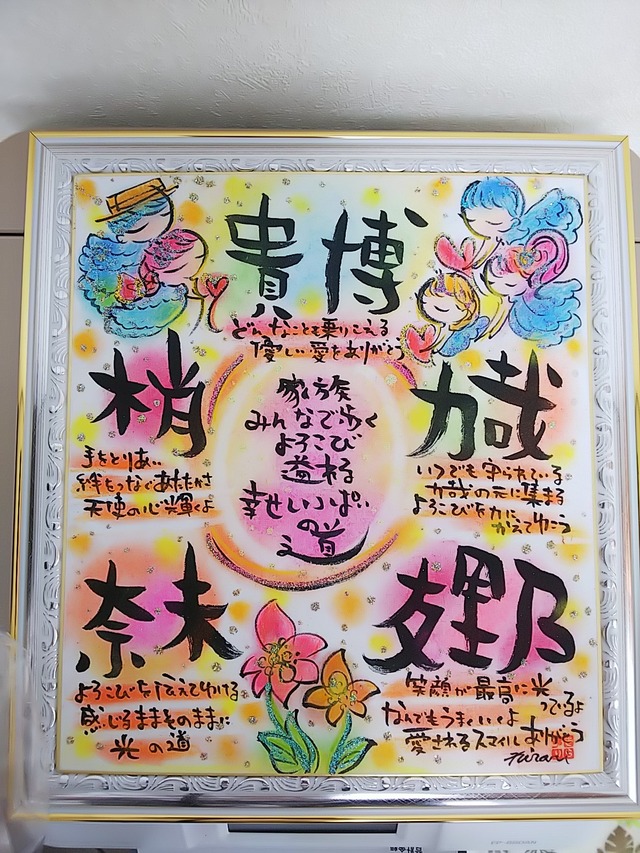 貴博
どんなことも乗りこえる
優しい愛をありがとう
梢
手をとりあい
絆をつなぐあたたかさ
天使の心輝くよ
家族
みんなで歩く
よろこび
溢れる
幸せいっぱい
の道
力哉
いつでも守られている
力哉の元に集まる
よろこびを力に
かえてゆこう
奈未
よろこびを伝えてゆける
感じるままそのままに
光の道
友理乃
笑顔が最高に光
ってるよ
なんでもうまくいくよ
愛されるスマイルありがとう